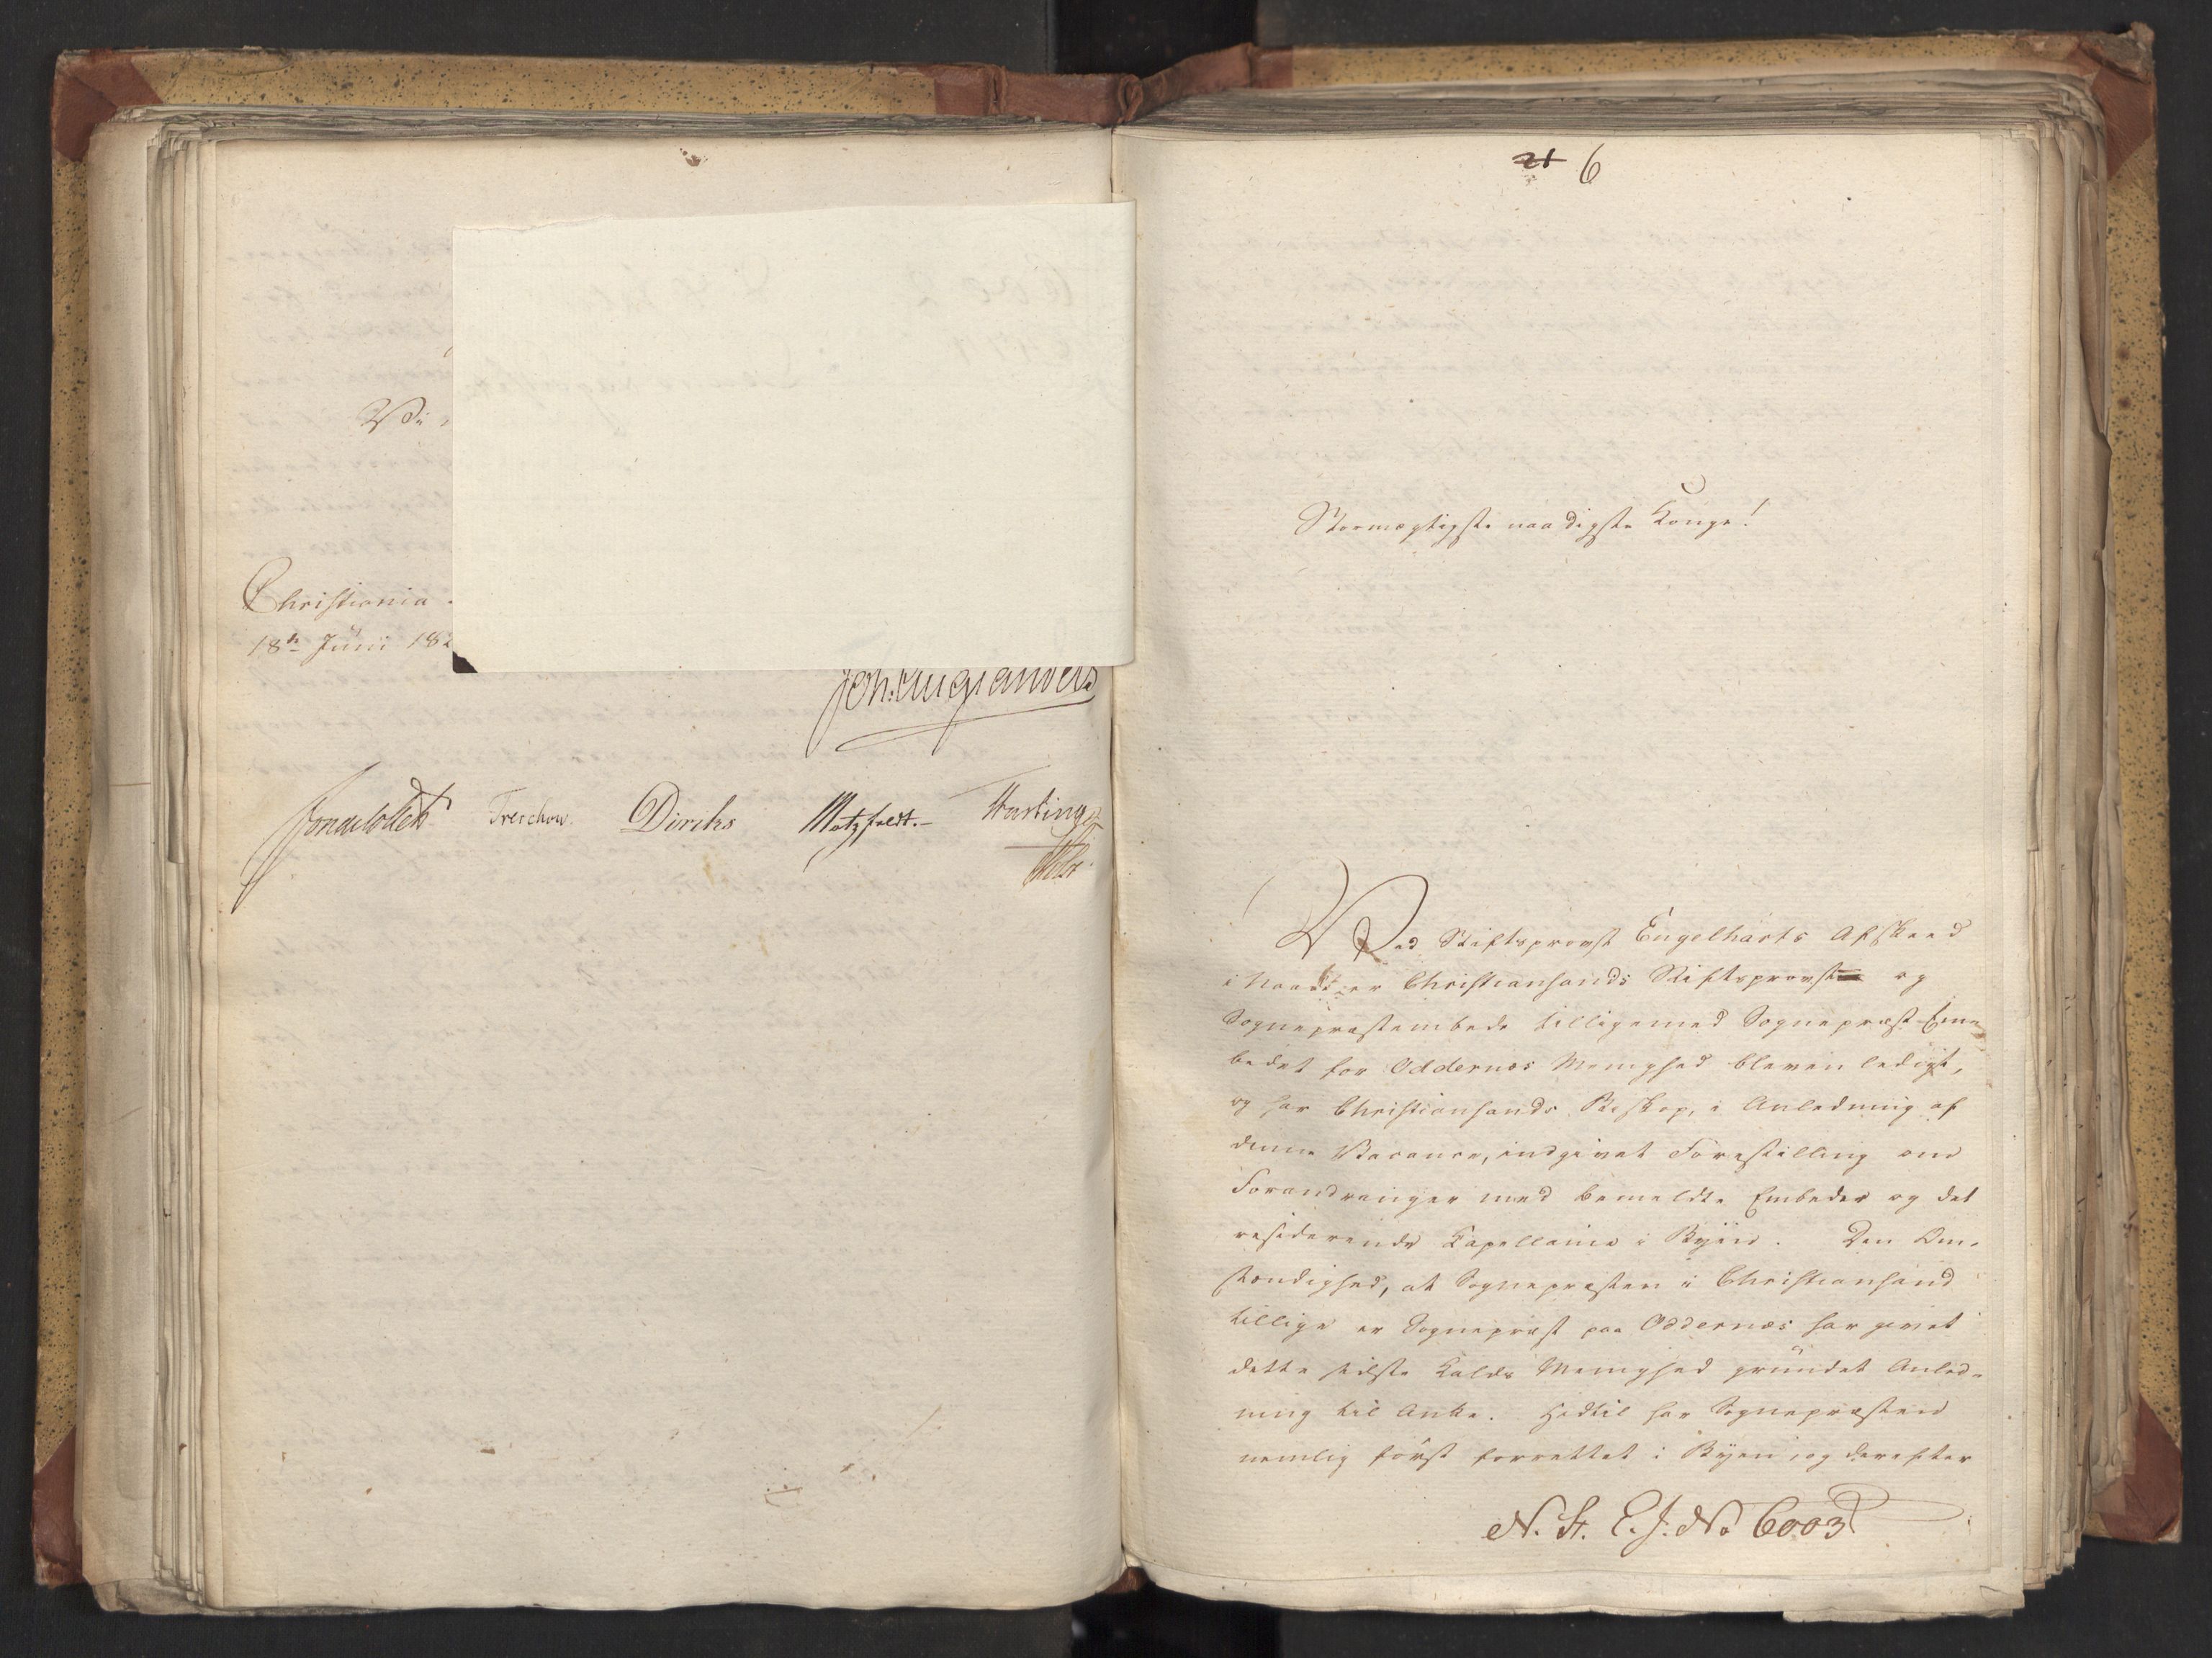 Vi
Christiania
18de Juni 18
Joh: Aug Sandels
Sommerhielm Treschow Diriks Motzfeldt. Fasting
Holst
21 6
Stormægtigste naadigste Konge!
Ved Stiftsprovst Engelharts Afskeed
i Naade er Christiansands Stiftsprovst og
Sognepræstembede tilligemed Sognepræst-Em-
bedet for Oddernes Menighed bleven ledigt,
og har Christiansands Biskop, i Anledning af
denne Vacance, indgivet Forestilling om
Forandringer med bemeldte Embeder og det
residerende Kapellanie i Byen. Den Om-
stændighed, at Sognepræsten i Christiansand
tillige er Sognepræst paa Oddernes har givet
dette sidste Kalds Menighed grundet Anled-
ning til Anke. Hidtil har Sognepræsten
nemlig først forrettet i Byen, og derefter
N. St. E. J. No 6003